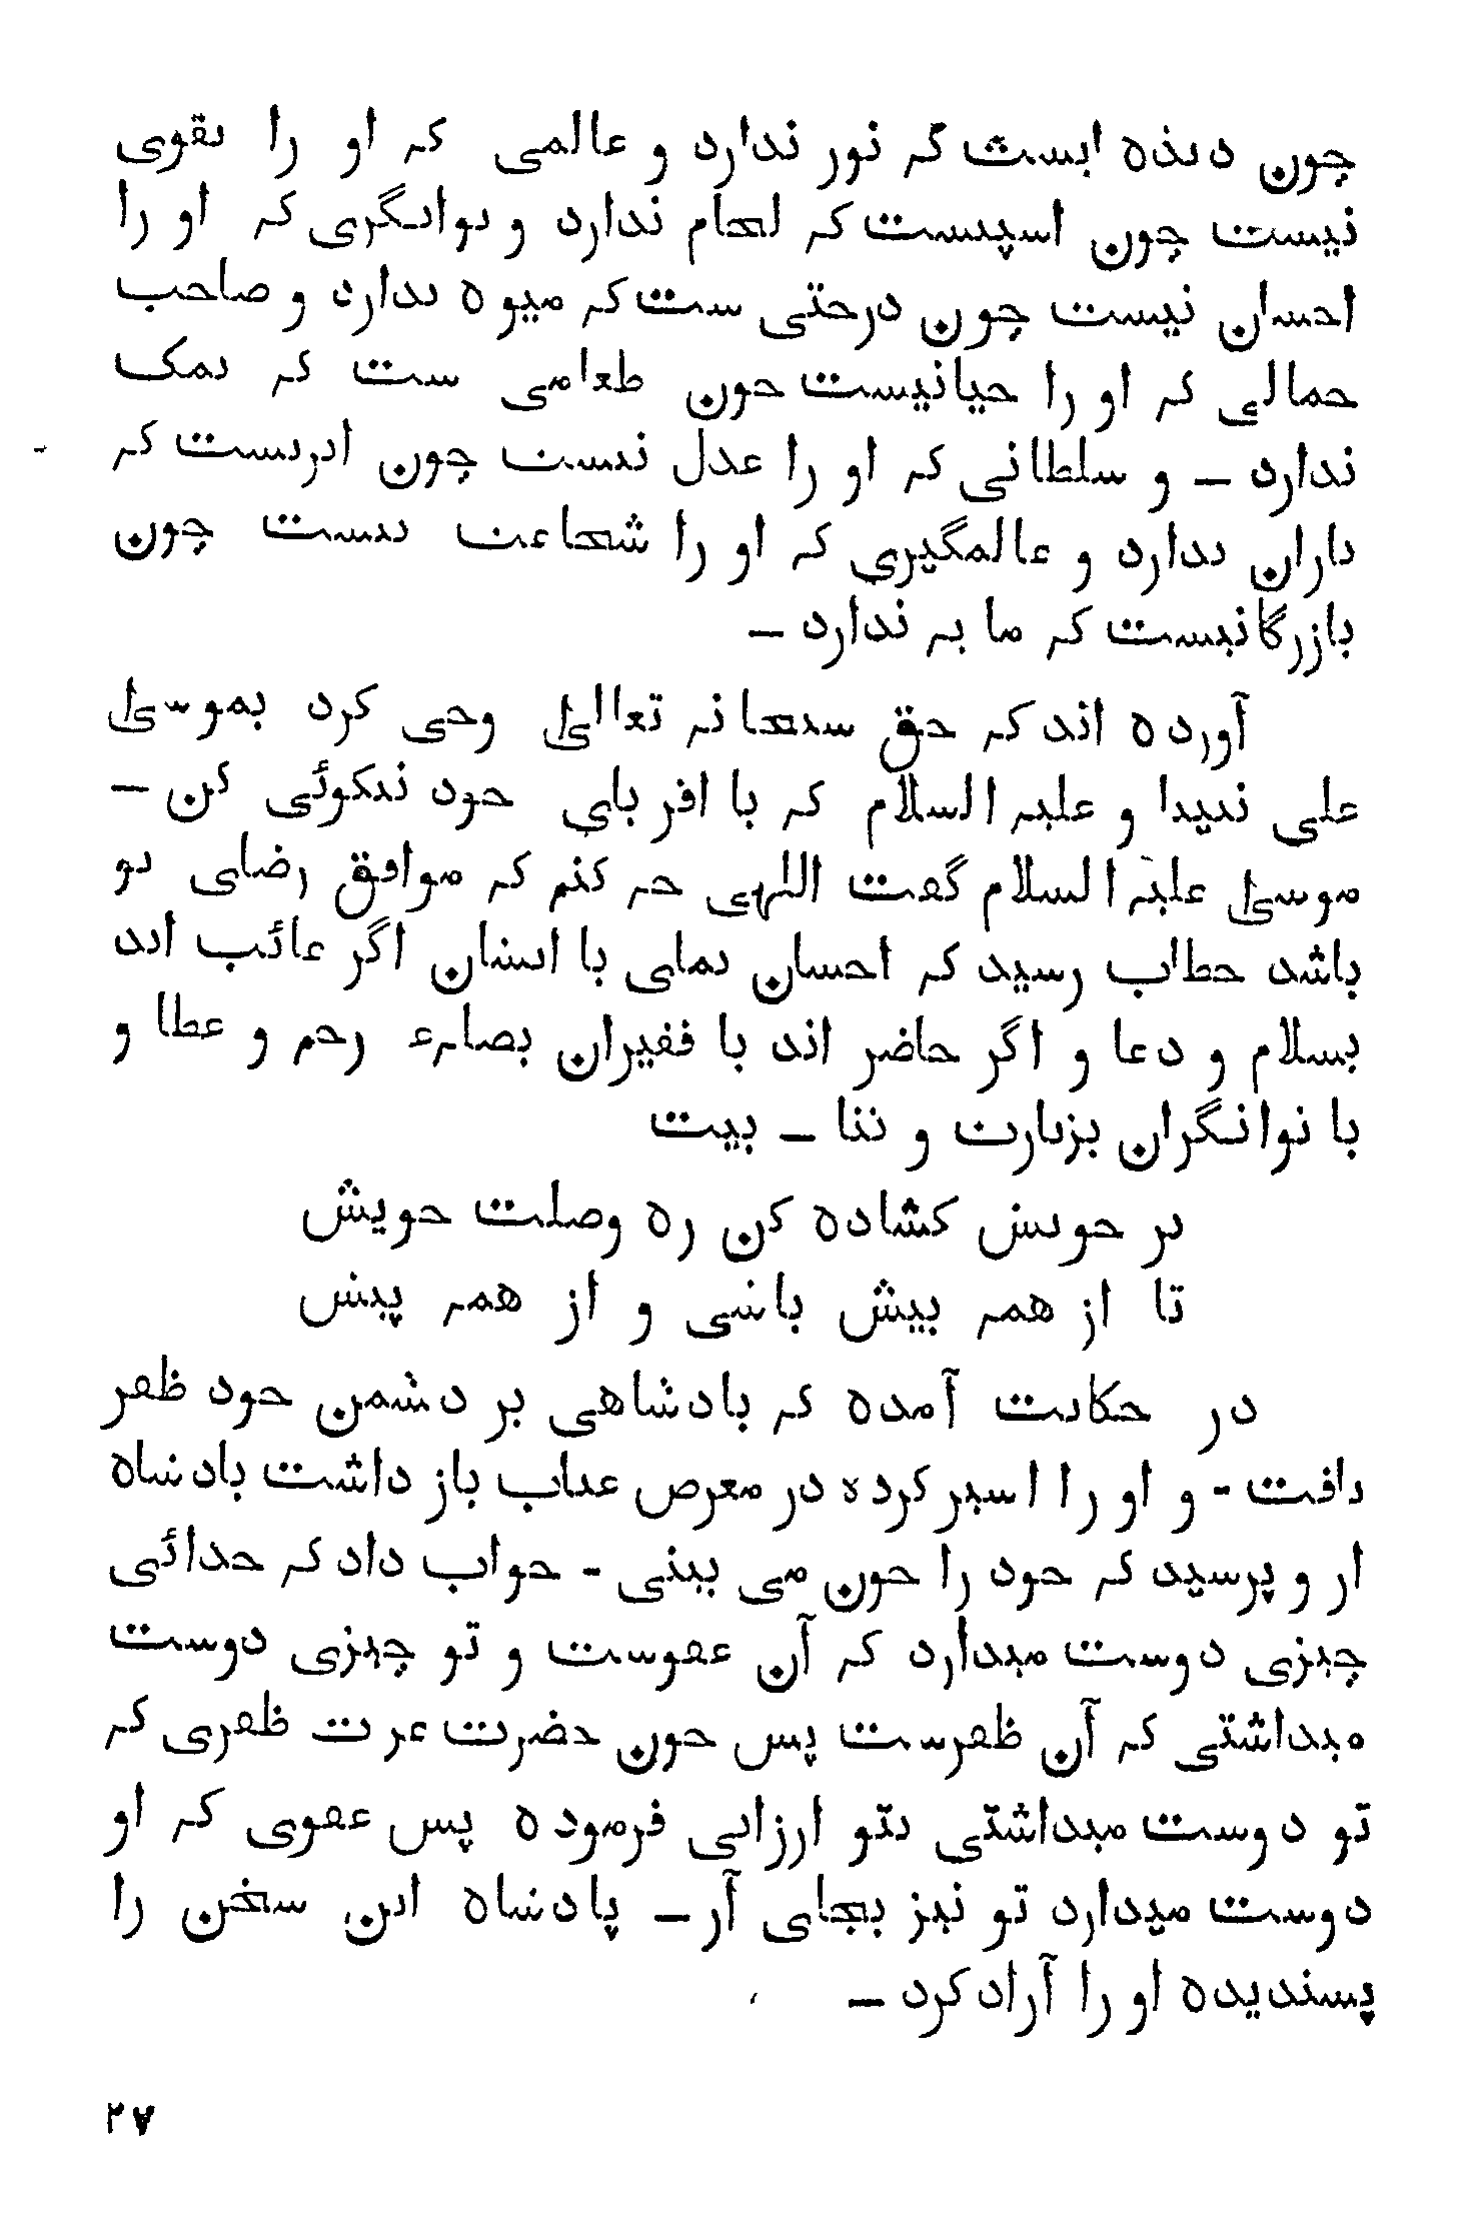 چون دیده ایست که نور ندارد و عالمی که او را تقوی
نیست چون اسپیست که لجام ندارد و توانگری که او را
احسان نیست چون درختی ست که میوه ندارد و صاحب
جمالی که او را حیانیست چون طعامی ست که نمک
ندارد – و سلطانی که او را عدل نیست چون ابریست که
باران ندارد و عالمگیری که او را شجاعت نیست چون
بازرگانیست که مایه ندارد –
آورده اند که حق سبحانه تعالیٰ وحی کرد بموسیٰ
علی نبینا و علیه السلام که با اقربای خود نیکوئی کن –
موسیٰ علیه السلام گفت اللهی چه کنم که موافق رضای تو
باشد خطاب رسید که احسان نمای با ایشان اگر غائب اند
بسلام و دعا و اگر حاضر اند با فقیران رحم و عطا و
با توانگران بزیارت و ثنا – بیت
بر خویش کشاده کن ره وصلت خویش
تا از همه بیش باشی و از همه پیش
در حکایت آمده که بادشاهی بر دشمن خود ظفر
یافت - و او را اسیر کرده در معرض عتاب باز داشت بادشاه
از و پرسید که خود را چون می بینی - جواب داد که خدائی
چیزی دوست میدارد که آن عفوست و تو چیزی دوست
میداشتی که آن ظفرست پس چون حضرت عزت ظفری که
تو دوست میداشتی بتو ارزانی فرموده پس عفوی که او
دوست میدارد تو نیز بجای آر – پادشاه این سخن را
پسندیده او را آزاد کرد –
۲۷